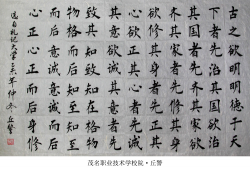 古之欲明明德于天
下者先治其國欲治
其國者先齊其家欲
齊其家者先修其身
欲修其身者先正其
心欲正其心者先誠
其意欲誠其意者先
致其知致知在格物
物格而后知至知至
而后意誠意誠而后
心正心正而后身修
仲冬 丘警
茂名职业技术学校院·丘警